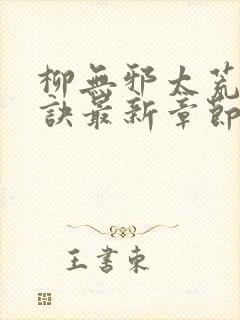 柳無邪太荒
訣最新章節
王書東